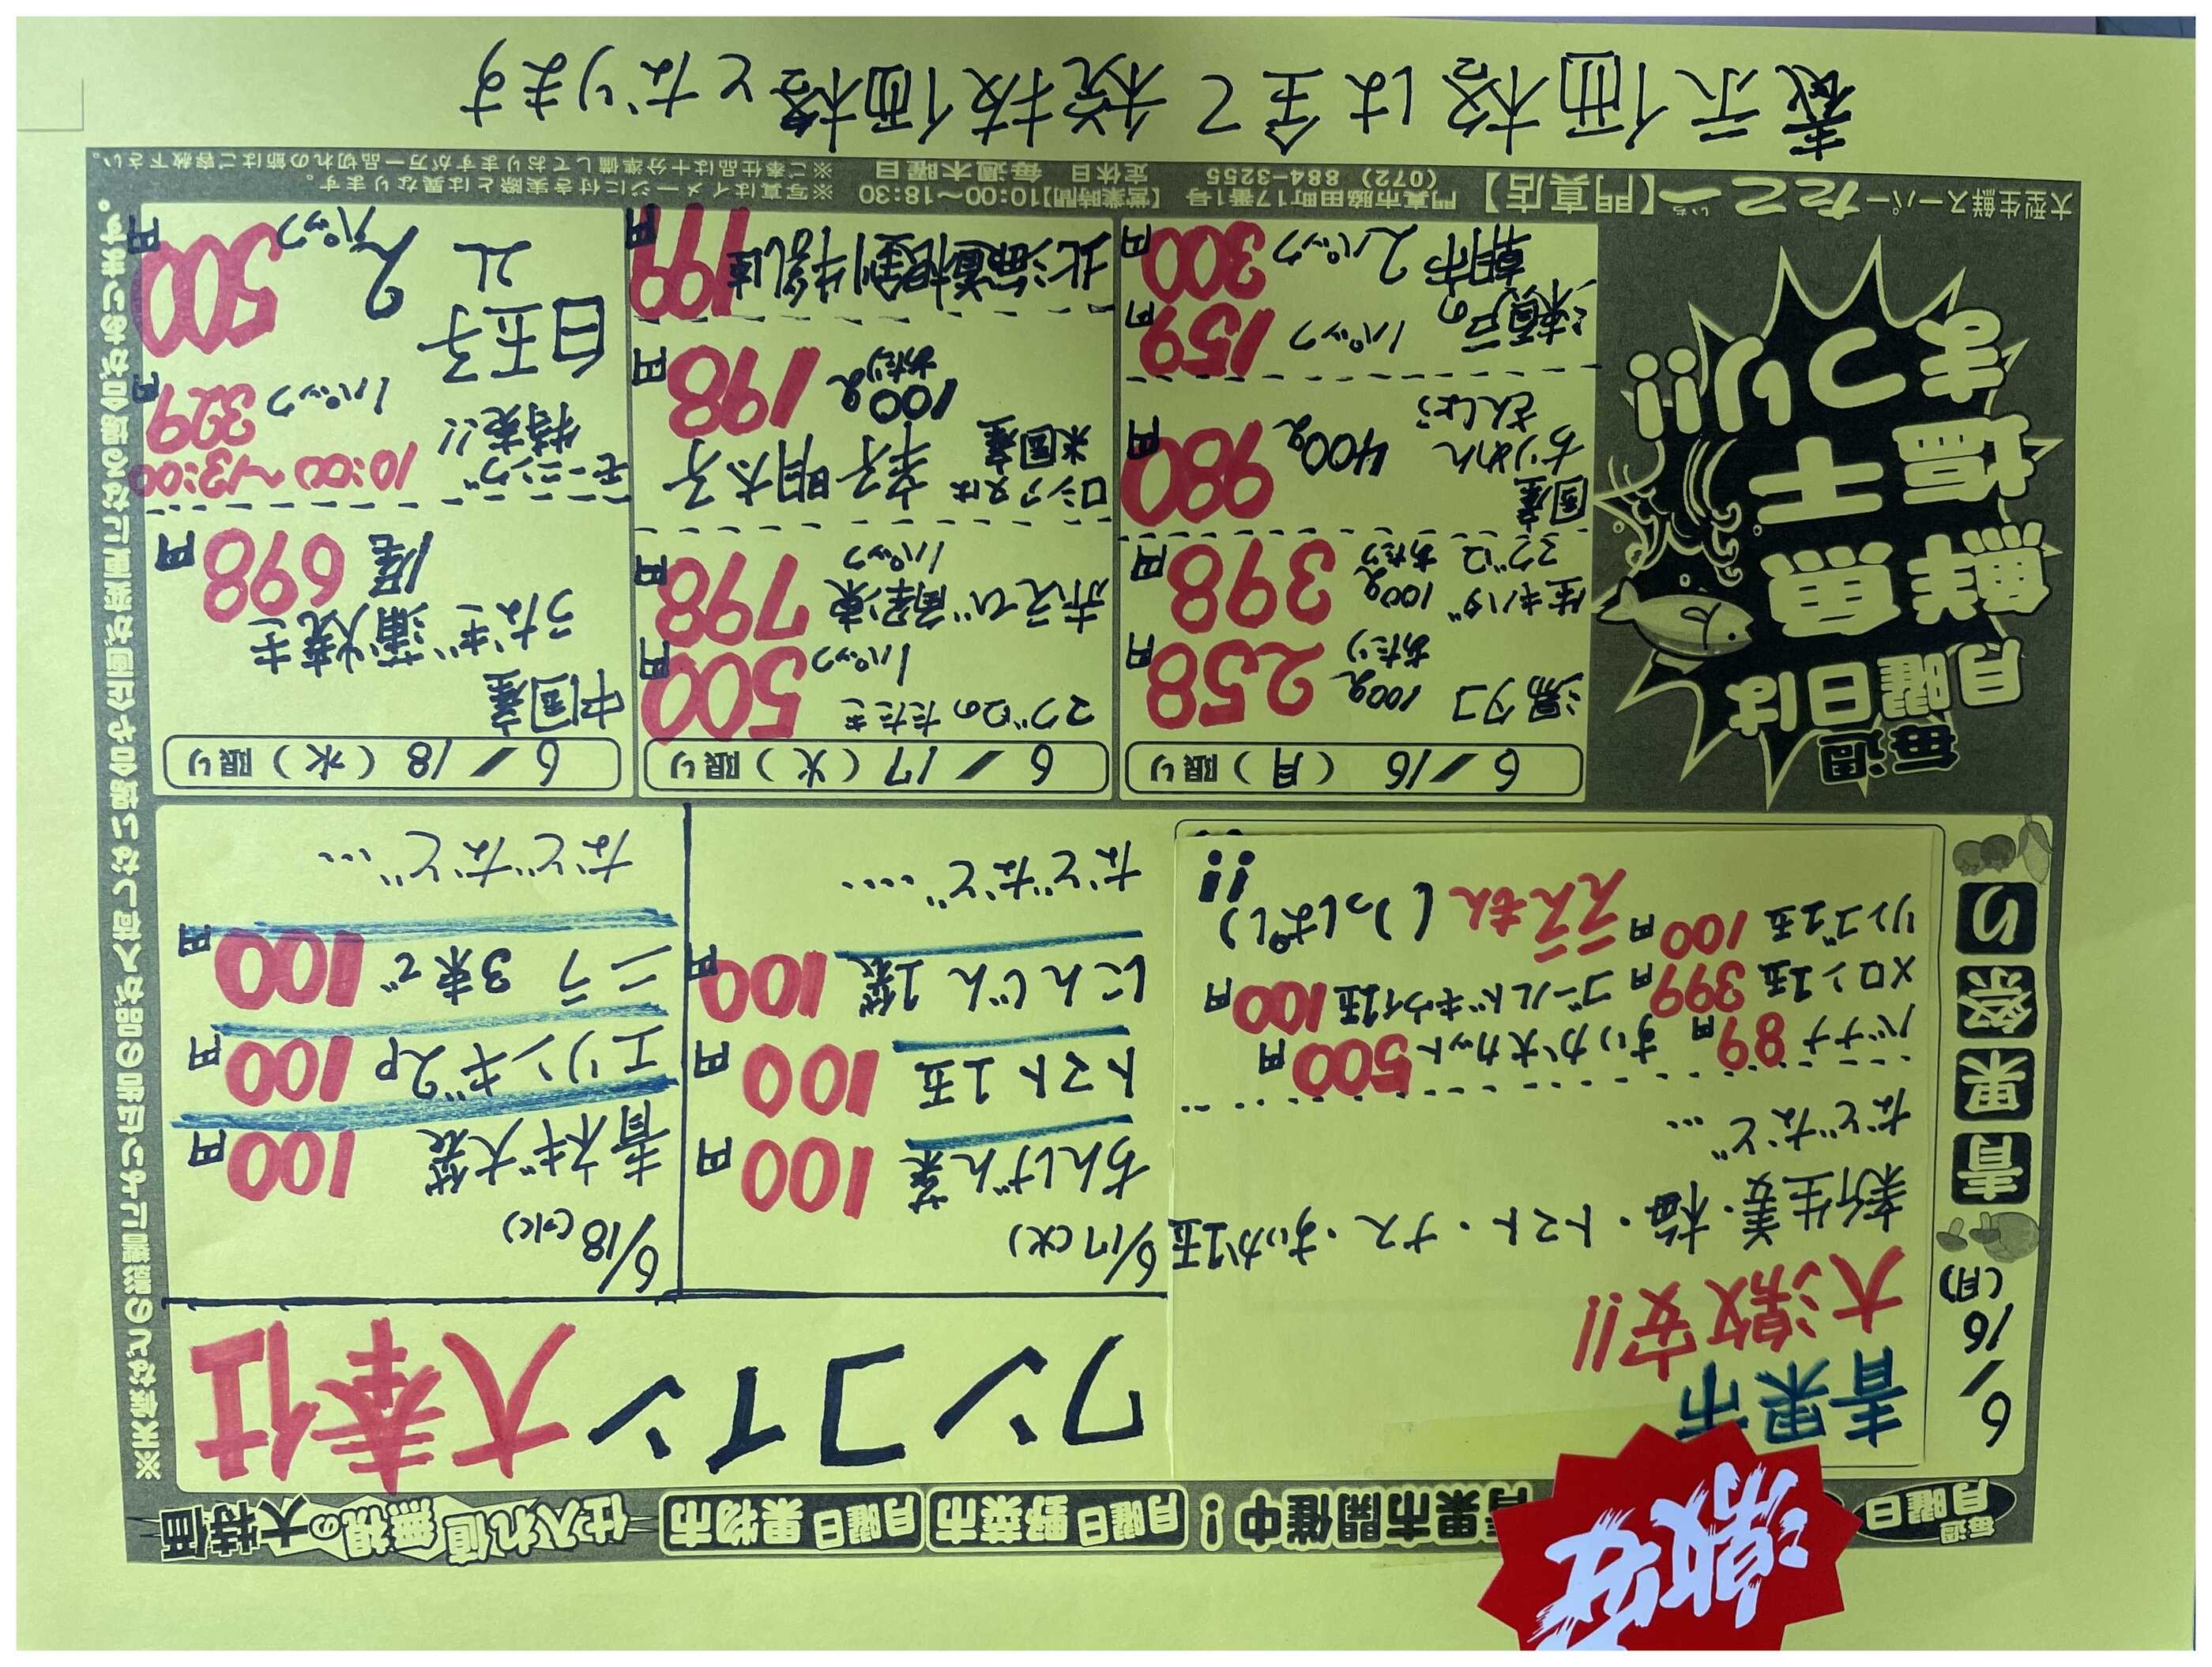 激安
毎週
月曜日
青果市開催中!
月曜日野菜市
月曜日果物市
仕入れ値無視の大特価
6/16
(月)
青果祭り
青果市
大激安!!
新生姜・梅・トマト・ナス・すいか1玉
などなど…
バナナ 89円 すいか大カット500円
メロン1玉 399円 ゴールドキウイ1玉100円
リンゴ1玉 100円 ええもんいっぱい!!
ワンコイン大奉仕
6/17(火)
ちんげん菜 100円
トマト1玉 100円
にんじん1袋 100円
などなど…
6/18(水)
青ネギ大袋 100円
エリンギ2P 100円
ニラ 3束で 100円
などなど…
毎週
月曜日は
鮮魚
塩干
まつり!!
6/16(月)限り
湯タコ 100gあたり 258円
生キハダマグロ 100gあたり 398円
国産
ちりめんさんしょう 400g 980円
瀬戸の 1パック 159円
朝市 2パック 300円
6/17(火)限り
マグロのたたき 1パック 500円
赤えび 解凍 1パック 798円
ロシア又は米国産 辛子明太子 100gあたり 198円
北海道根釧牛乳1L 199円
6/18(水)限り
中国産
うなぎ蒲焼き
1尾 698円
モーニング特売!! 10:00〜13:00
白玉子 2L
1パック 329円
2パック 500円
大型生鮮スーパー たこ一 いち 【門真店】
門真市脇田町17番1号
(072) 884-3255
【営業時間】10:00〜18:30
定休日 毎週木曜日
※写真はイメージにつき実際とは異なります。
※ご奉仕品は十分準備しておりますが万一品切れの節はご容赦下さい。
※天候などの影響によつきましの品が入荷しない場合や企画が変更になる場合がございます。
表示価格は全て税抜価格となります